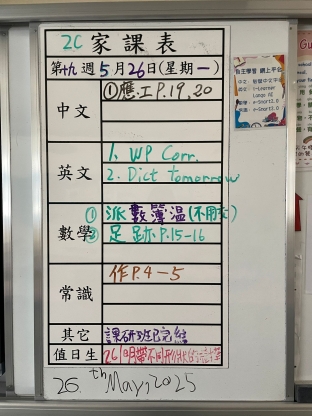 2C 家課表
第十九週5月26日(星期一)
中文
①應.工P.19,20
英文
1. WP Corr.
2. Dict tomorrow
數學
① 派數簿溫(不用交)
② 足跡P.15-16
常識
作P.4-5
其它
課研班已完結
值日生
26
26th May, 2025
自主學習 網上平台